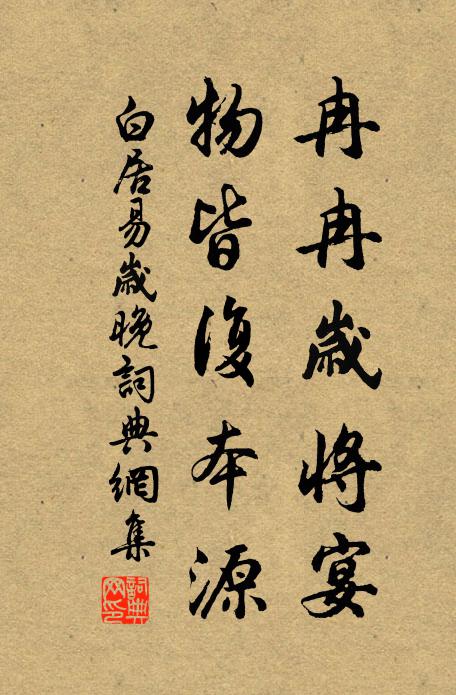 冉冉歲將宴
物皆復本源
白居易歲晚詞典網集
詞典
网印